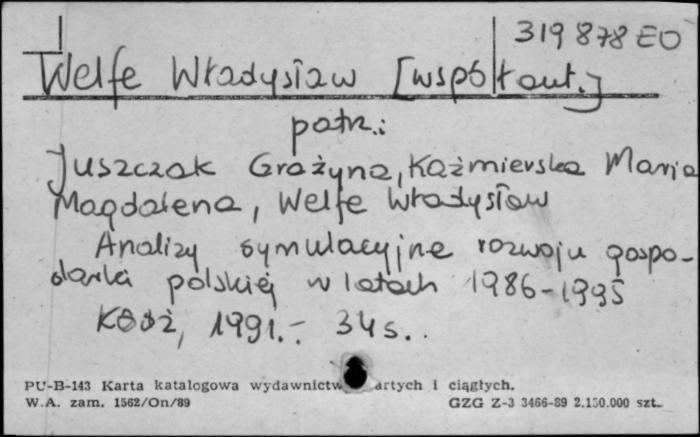 319 878 EO
Welfe Władysław [współaut.]
patrz.:
Juszczak Grażyna, Kaźmierska Maria
Magdalena, Welfe Władysław
Analizy symulacyjne rozwoju gospo-
darki polskiej w latach 1986-1995
Łódź, 1991.- 34 s..
PU-B-143 Karta katalogowa wydawnictw artych i ciągłych.
W.A. zam. 1562/On/89 GZG Z-3 3466-89 2.150.000 szt.